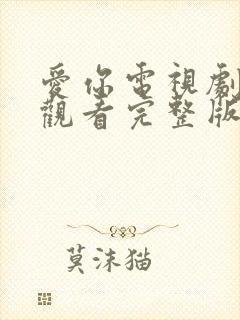 愛你電視劇
觀看完整版
莫沫猫